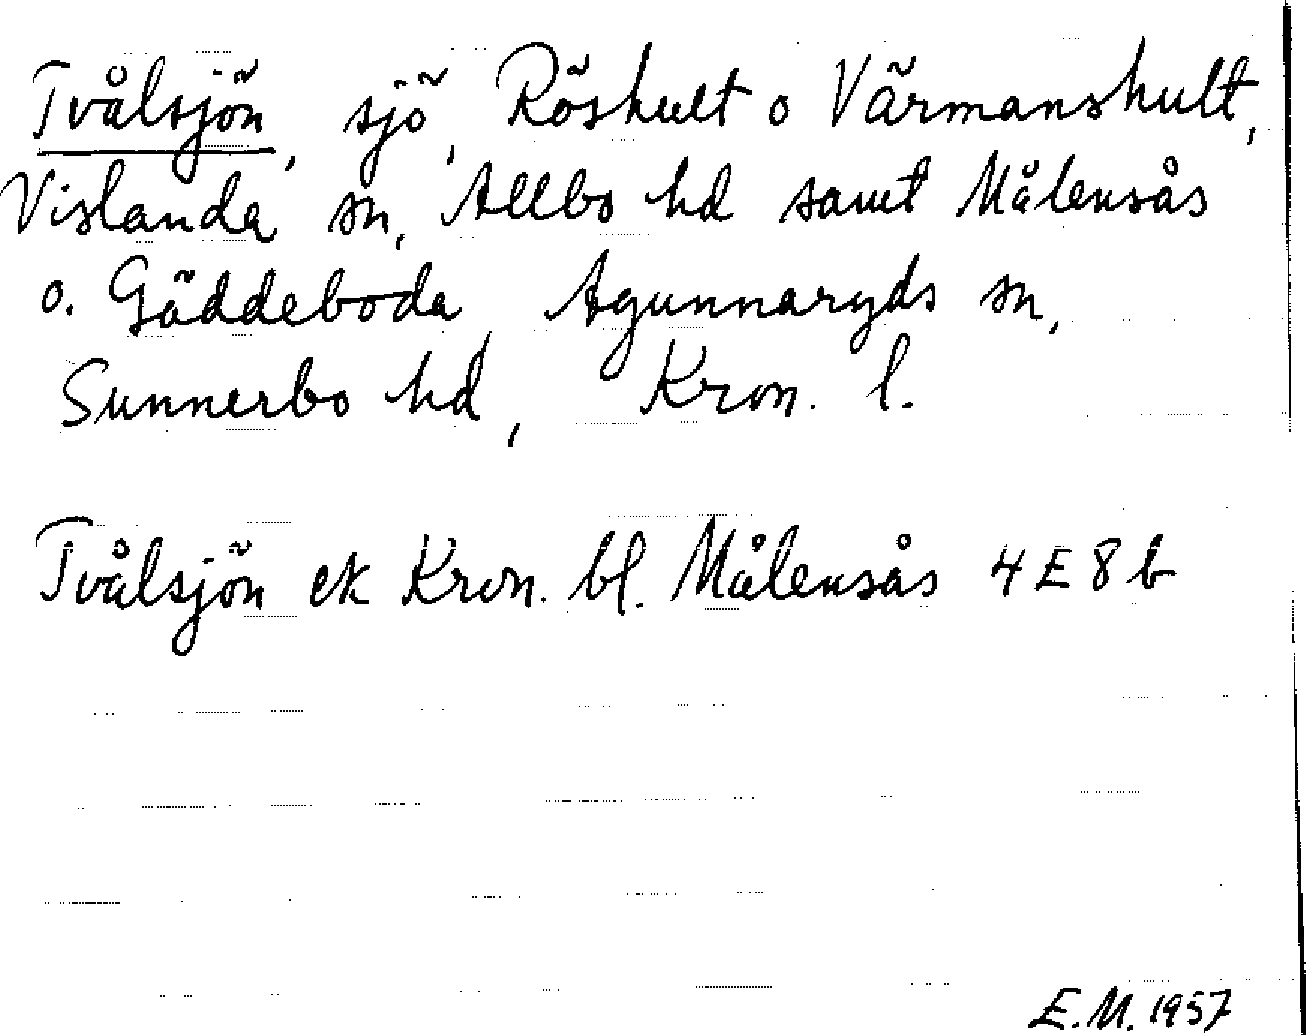 Tvålsjön, sjö, Röshult o Värmanshult,
Vislanda sn, Allbo hd samt Målensås
o. Gäddeboda, Agunnaryds sn,
Sunnerbo hd, Kron. l.
Tvålsjön ek Kron. bl. Målensås 4 E 8 b
E.M. 1957